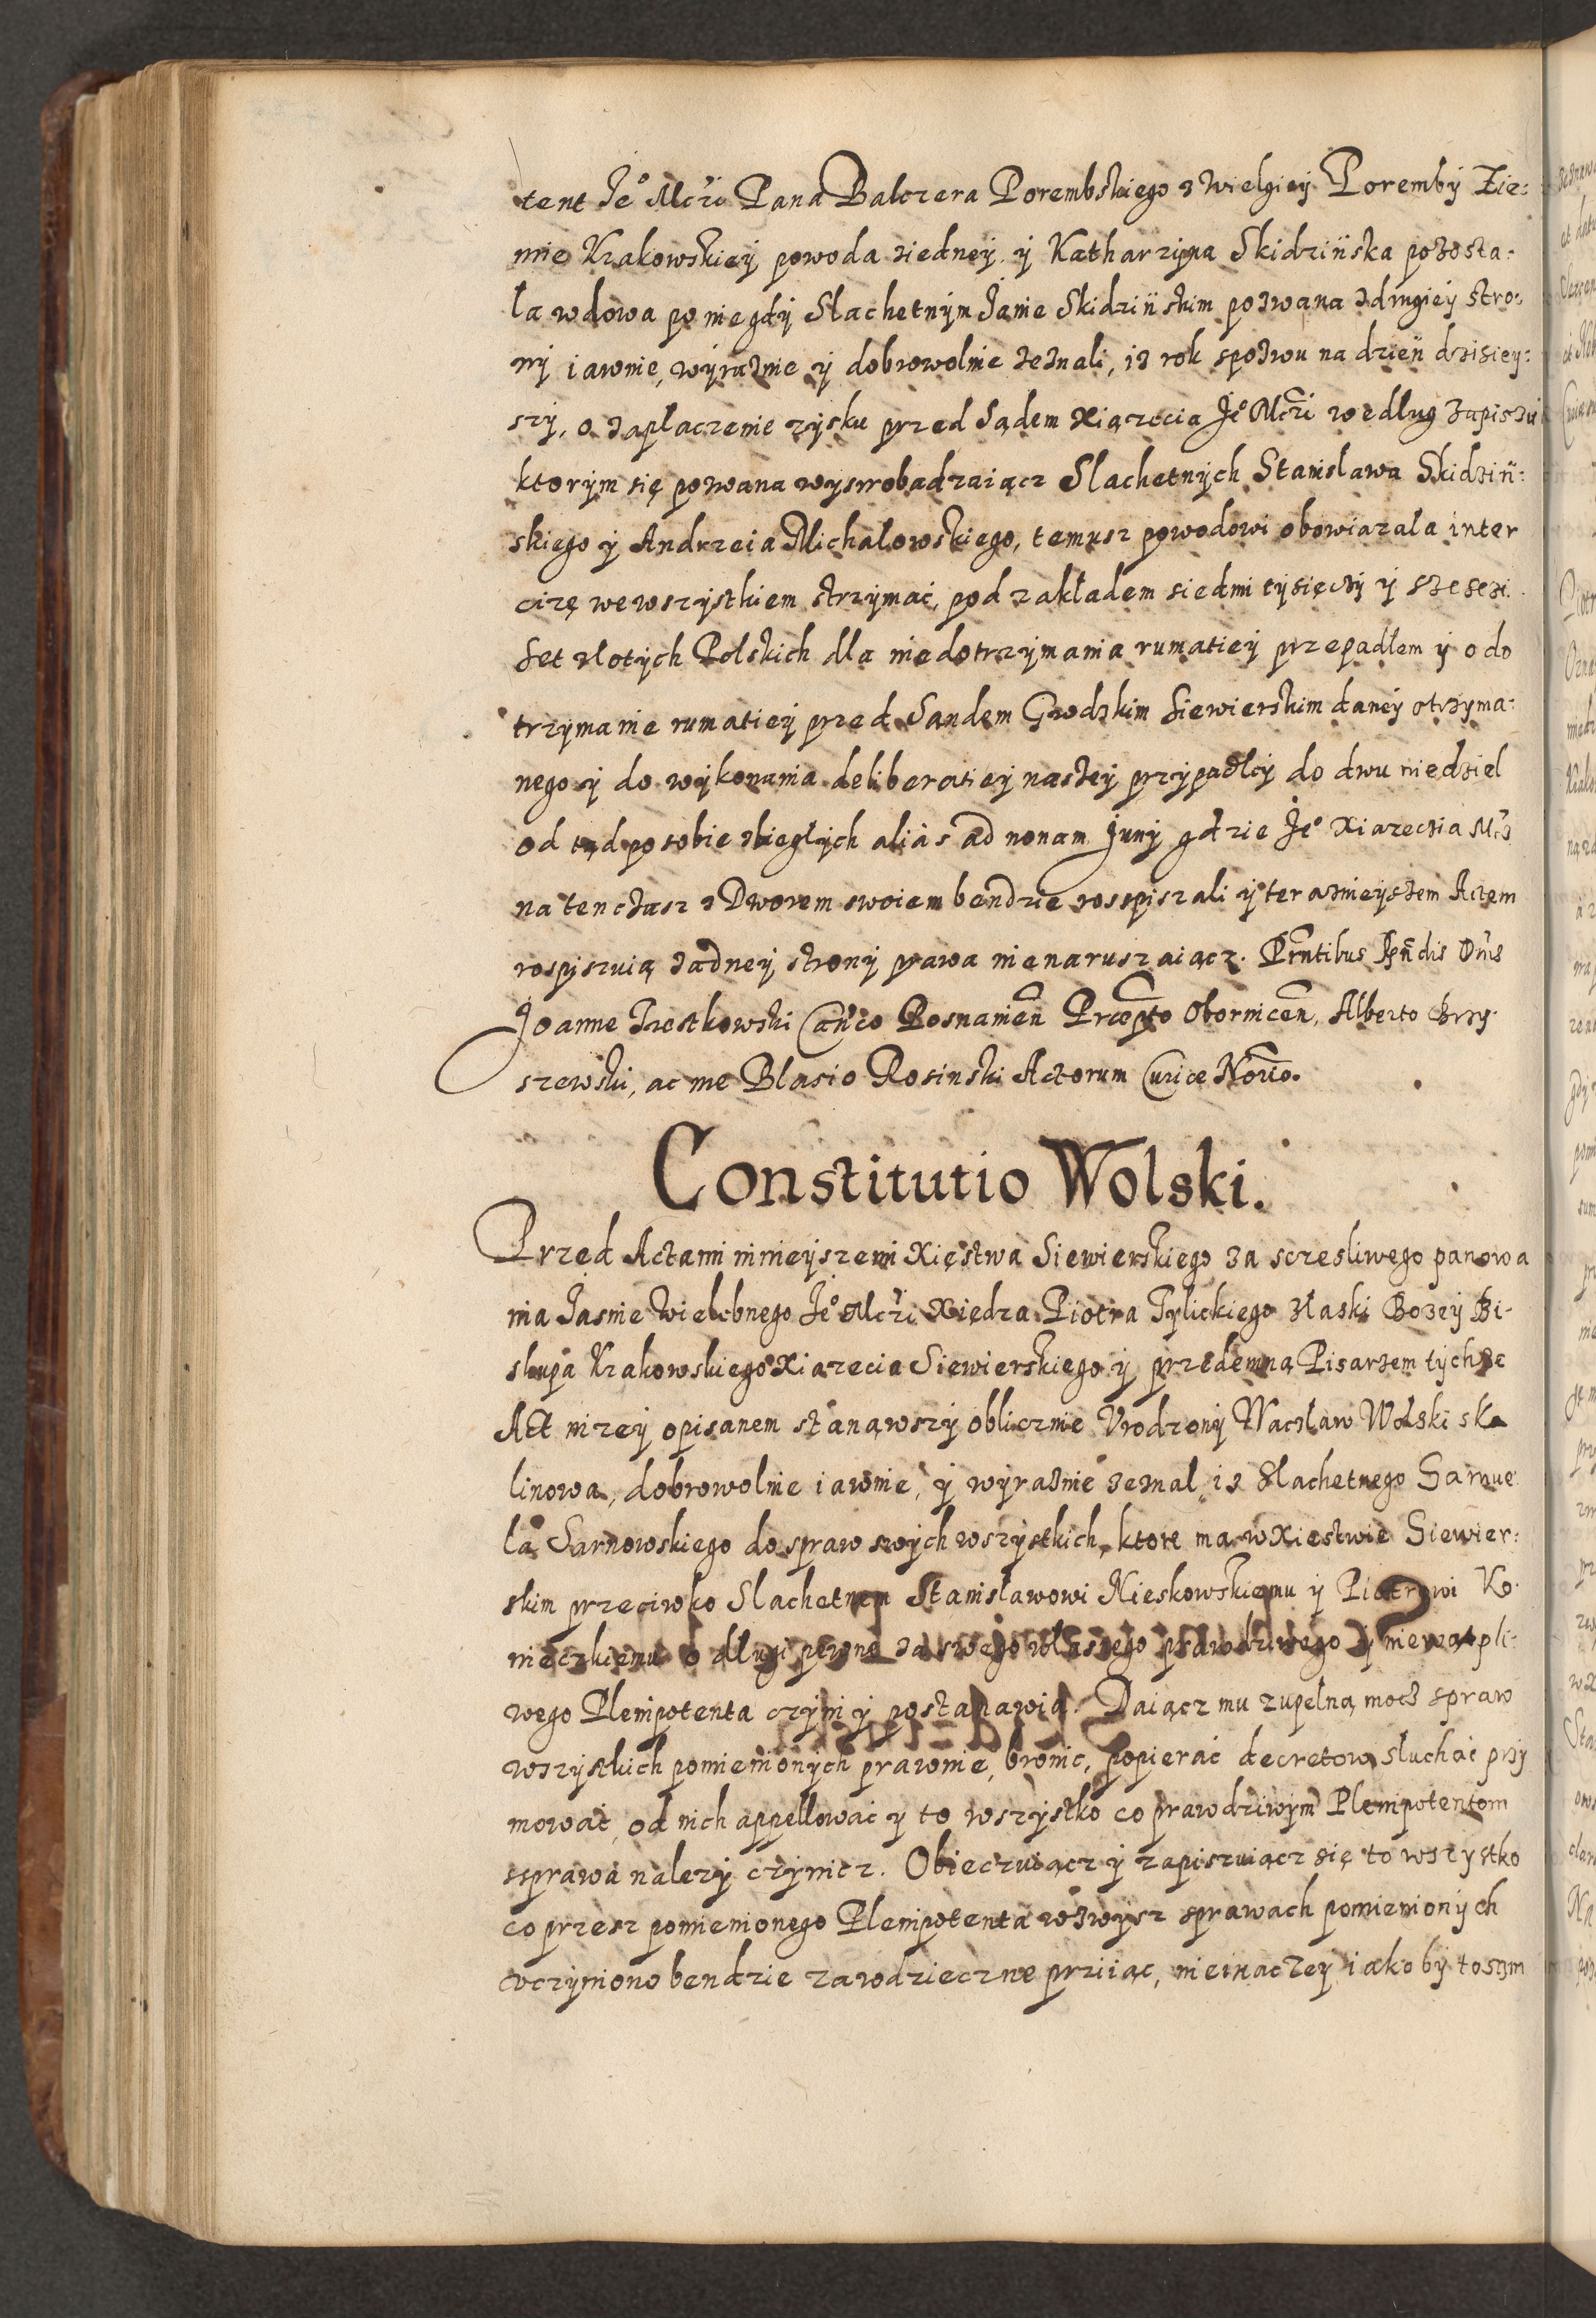 tent Je° Mczi Pana Balczera Porembskiego z Wielgiey Poremby Zie:
mie Krakowskiey powoda ziedney y Katharzyna Skidzińska pozosta:
ła wdowa po niegdy Slachetnym Janie Skidzińskim pozwana zdrugiey stro:
ny iawnie, wyraznie y dobrowolnie zeznali, iz rok spozwu na dzień dzisiey:
szy, o zapłaczenie zysku przed Sądem Xiązecia Je° Mczi według zapiszu
ktorym się pozwana wyswobadzaiącz Slachetnych Stanislawa Skidziń:
skiego y Andrzeia Michalowskiego, temusz powodowi obowiazala inter
cizę wewszystkiem strzymać, pod zakładem siedmi tysięczy y szesczi
set złotych Polskich dla niedotrzymania rumatiey przepadłem y o do
trzymanie rumatiey przed Sandem Grodzkim Siewierskim daney otrzyma:
nego y do wykonania deliberatiey naszey przypadłey do dwu niedziel
od tąd po sobie zbiegłych aliàs ad nonam Juny gdzie Je° Xiazeczia Mcz
na ten czasz z Dworem swoiem bendzie rosspiszali y teraznieyszem Actem
rospiszuią zadney strony prawa nienaruszaiącz. Prntibus Rndis Dnis
Joanne Trestkowski Canco Posnanien Prcopto Obornicen, Alberto Brzy
szewski, ac me Blasio Rosinski Actorum Curice Norio.
Constitutio Wolski.
Przed Actami ninieyszemi Xięstwa Siewierskiego za sczesliwego panowa
nia Jasnie Wielebnego Je° Mczi Xiędza Piotra Tylickiego złaski Bozey Bi-
skupa Krakowskiego Xiazecia Siewierskiego y przedemną Pisarzem tychze
Act nizey opisanem stanąwszy oblicznie Vrodzony Wacław Wolski ska
linowa, dobrowolnie iawnie, y wyraznie zeznal iz Slachetnego Samue
la Sarnowskiego do spraw swych wszystkich, ktore ma w Xiestwie Siewier:
skim przeciwko Slachetnem Stanisławowi Nieskowskiemu y Piotrowi Ko
nieczkiemu o długi pewne za swego własnego prawdziwego y niewatpli:
wego Plenipotenta czyni y postanawia. Daiącz mu zupełną mocz spraw
wszystkich pomienionych prawnie, bronic, popierać decretow słuchać przy
mować, od nich appellować y to wszystko co prawdziwym Plenipotentom
ssprawa nalezy czynicz. Obieczuiącz y zapiszuiącz się to wszystko
co przesz pomienionego Plenipotenta wzwysz sprawach pomienionych
vczyniono bendzie zawdzieczne prziiąc, nieinaczey iakoby to szm